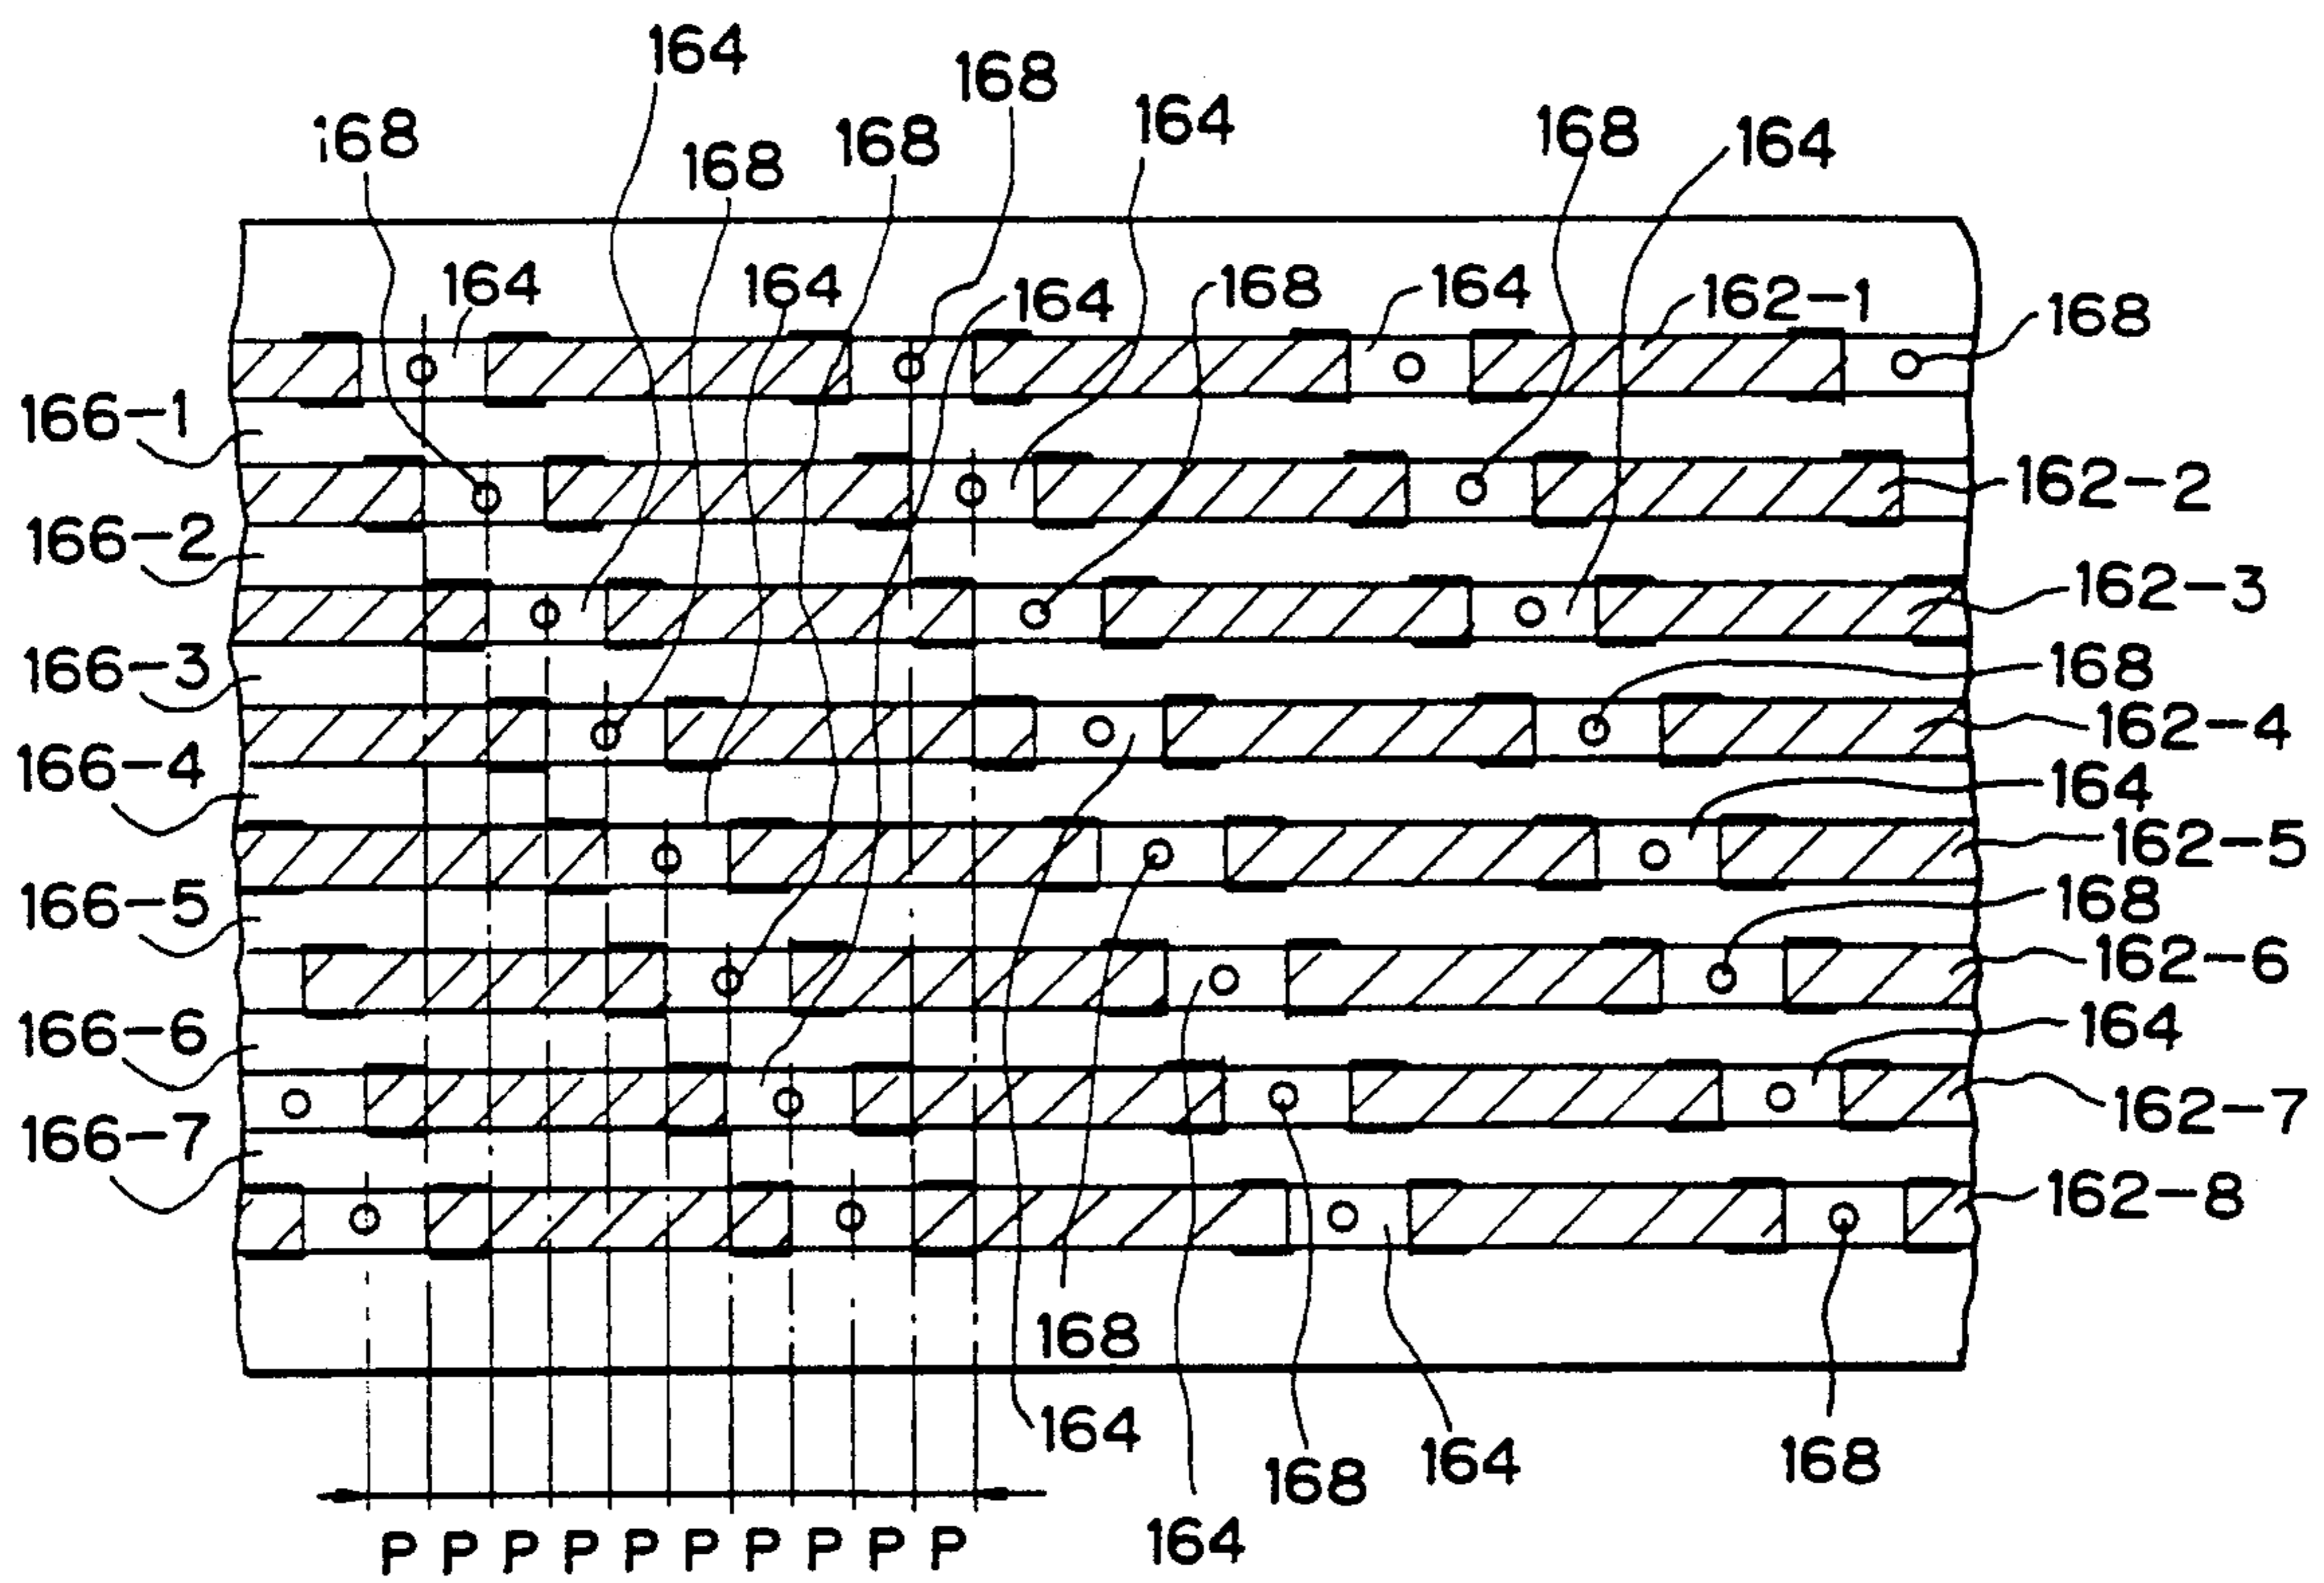 164
168
164
168
168
164
168
168
164
164
164
168
164
162-1
168
166-1
162-2
166-2
162-3
166-3
168
162-4
166-4
164
162-5
166-5
168
162-6
166-6
164
162-7
166-7
162-8
168
164
168
164
168
164
P P P P P P P P P P